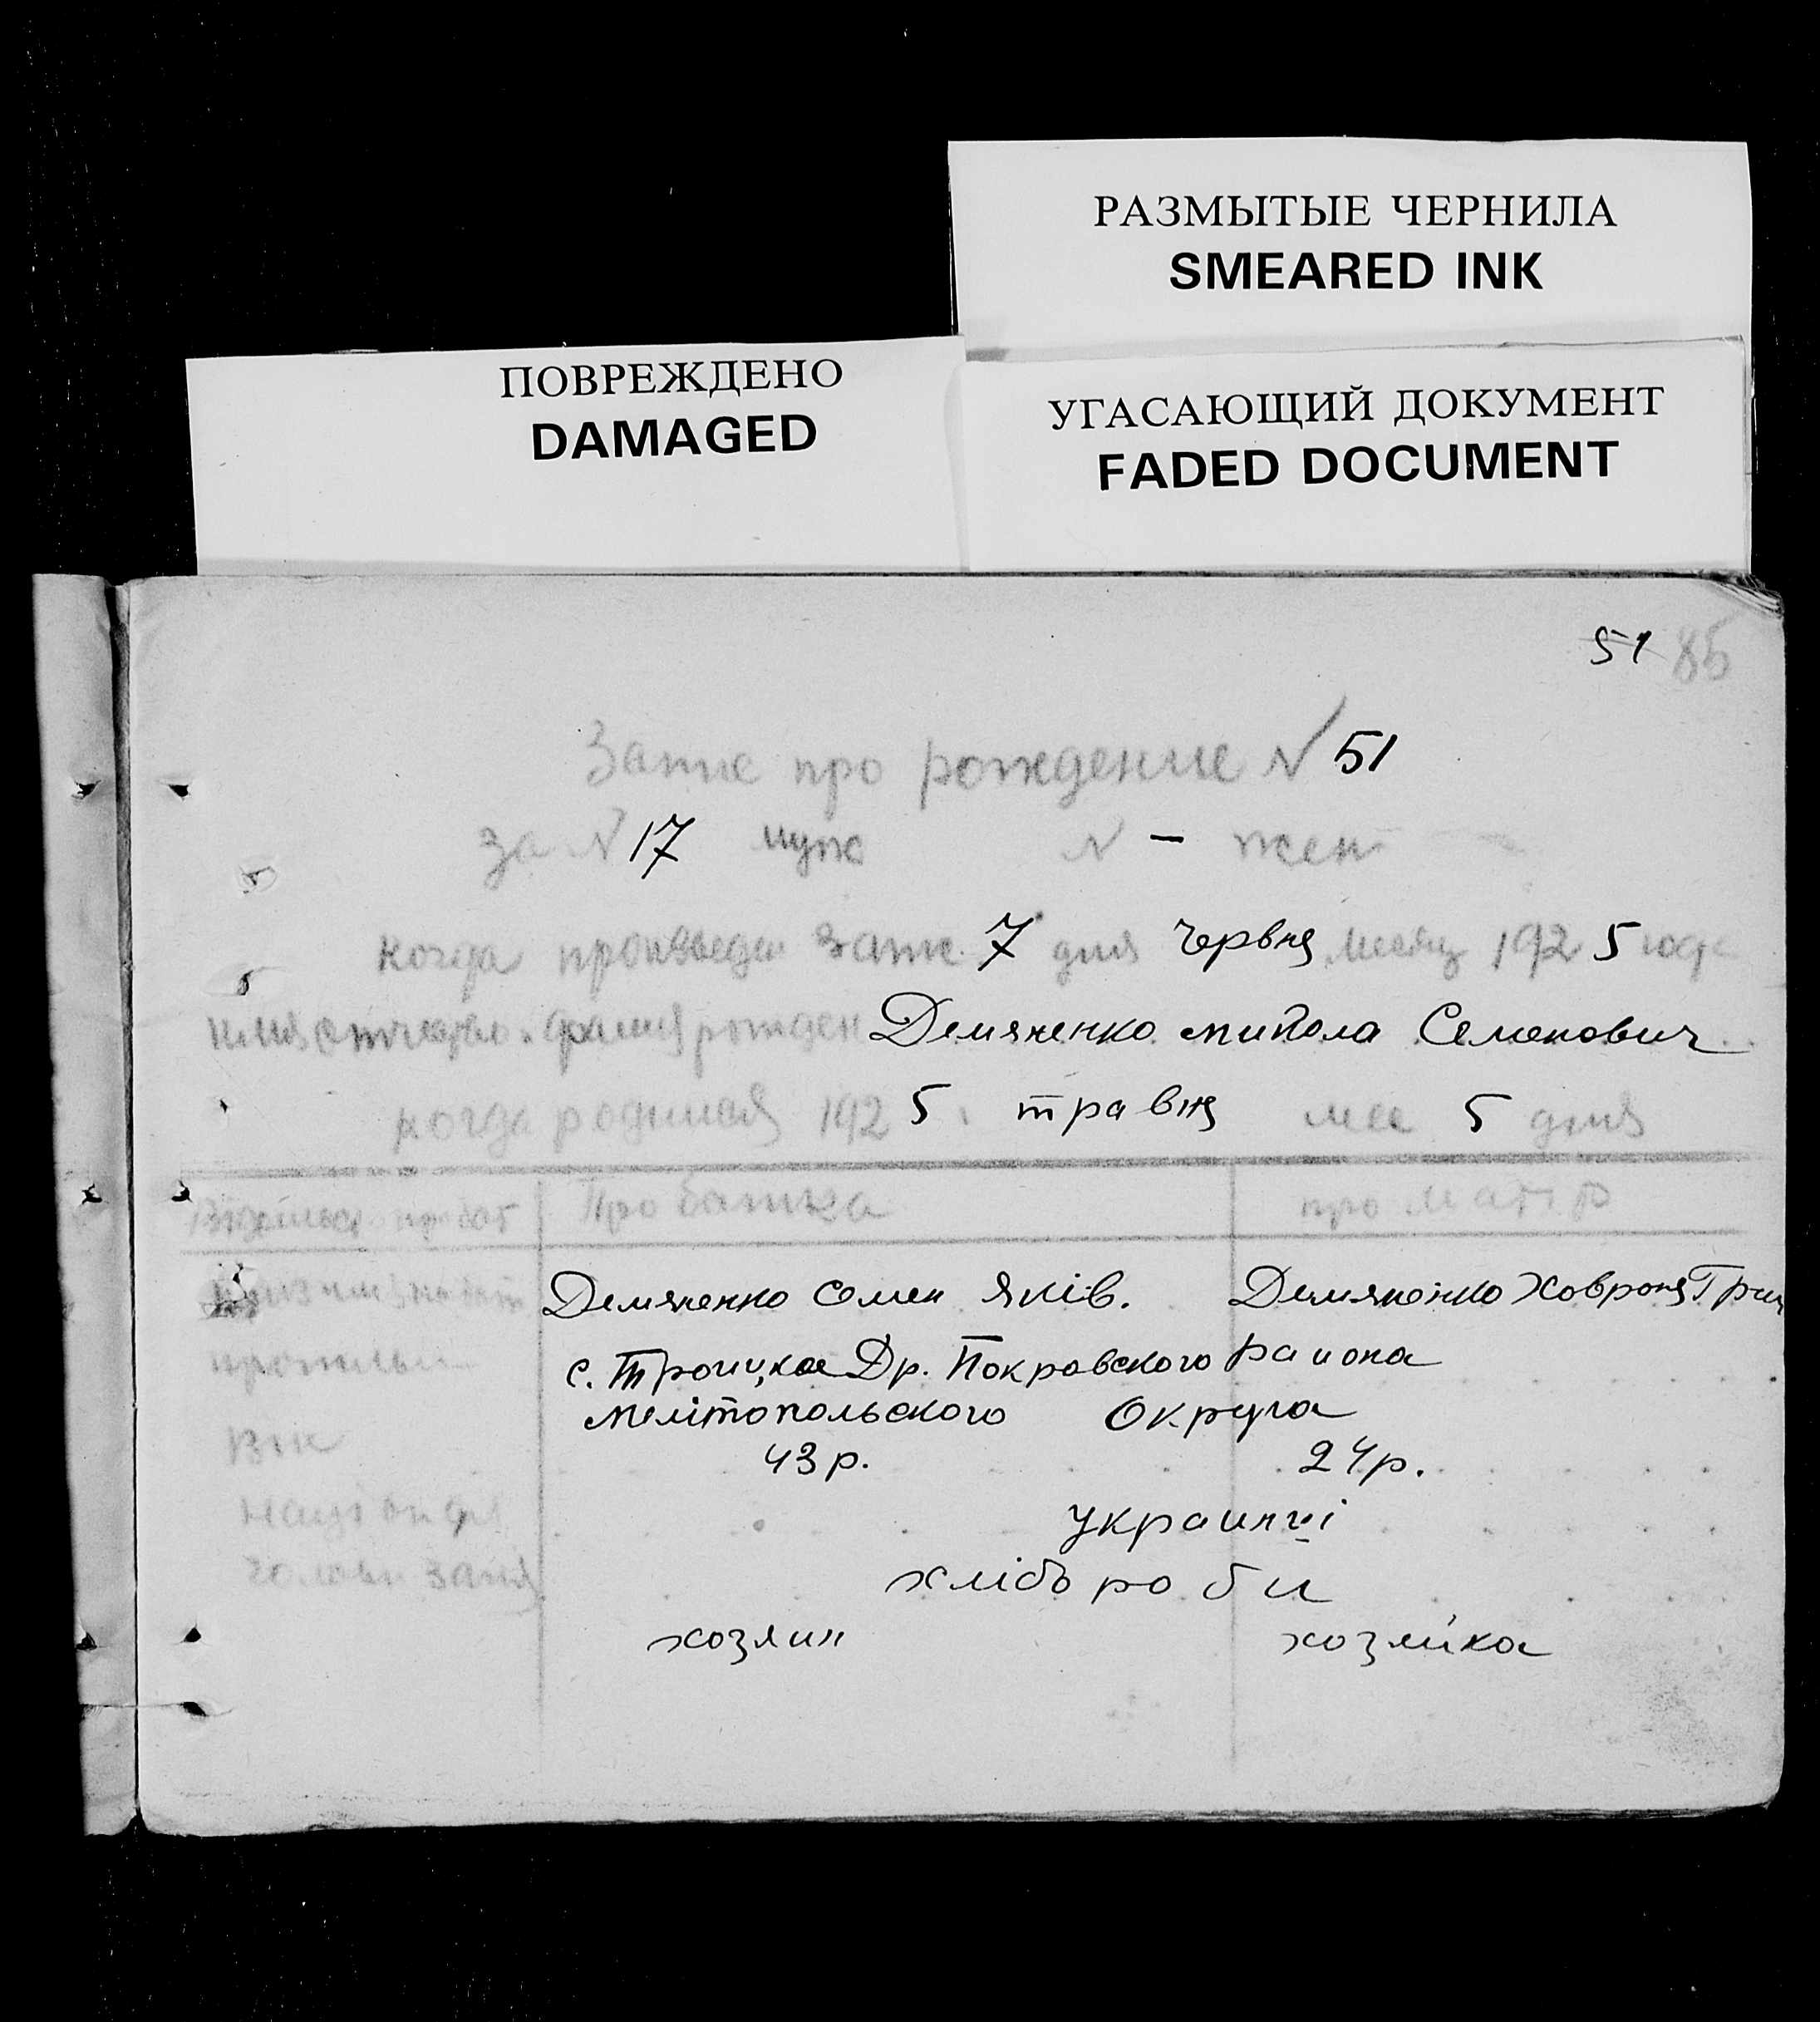 РАЗМЫТЫЕ ЧЕРНИЛА
SMEARED INK
ПОВРЕЖДЕНО
DAMAGED
УГАСАЮЩИЙ ДОКУМЕНТ
FADED DOCUMENT
51 86
Запис про рождение N 51
за N 17 муж N - жен
когда произведен запис 7 дня Червня месяц 1925 года
имя отчество фамил рожден Демяненко Микола Семенович
когда родился 1925 травня мес 5 дня
Про батька про матір
Демяненко Семен Яків. Демяненко Ховроня Григ
с. Троицкое Др. Покровского раиона
Мелітопольского Округа
Вік 43 р. 24 р.
украинці
хлібороби
хозяин хозяйка